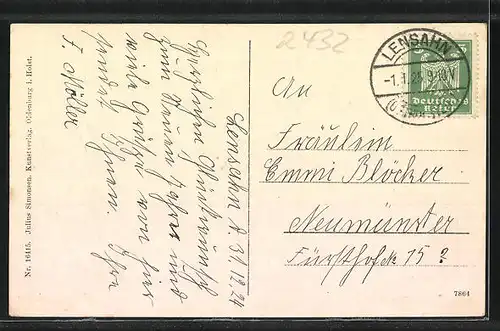 2432
LENSAHN
Deutsches
Reich
Lensahn d 31.12.24
Herzlichen Glückwunsch
zum Neuen Jahre und
viele Grüße von hier
sendet Ihnen. Ihre
F. Möller
An
Fräulein
Emmi Blöcker
Neumünster
Fürsthof 15?
Nr. 16415. Julius Simonsen, Kunstverlag, Oldenburg i. Holst.
7864